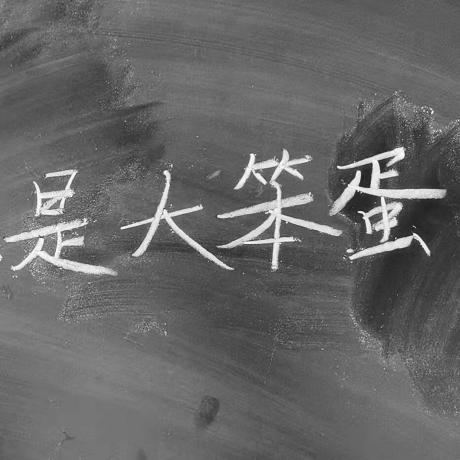 是大笨蛋